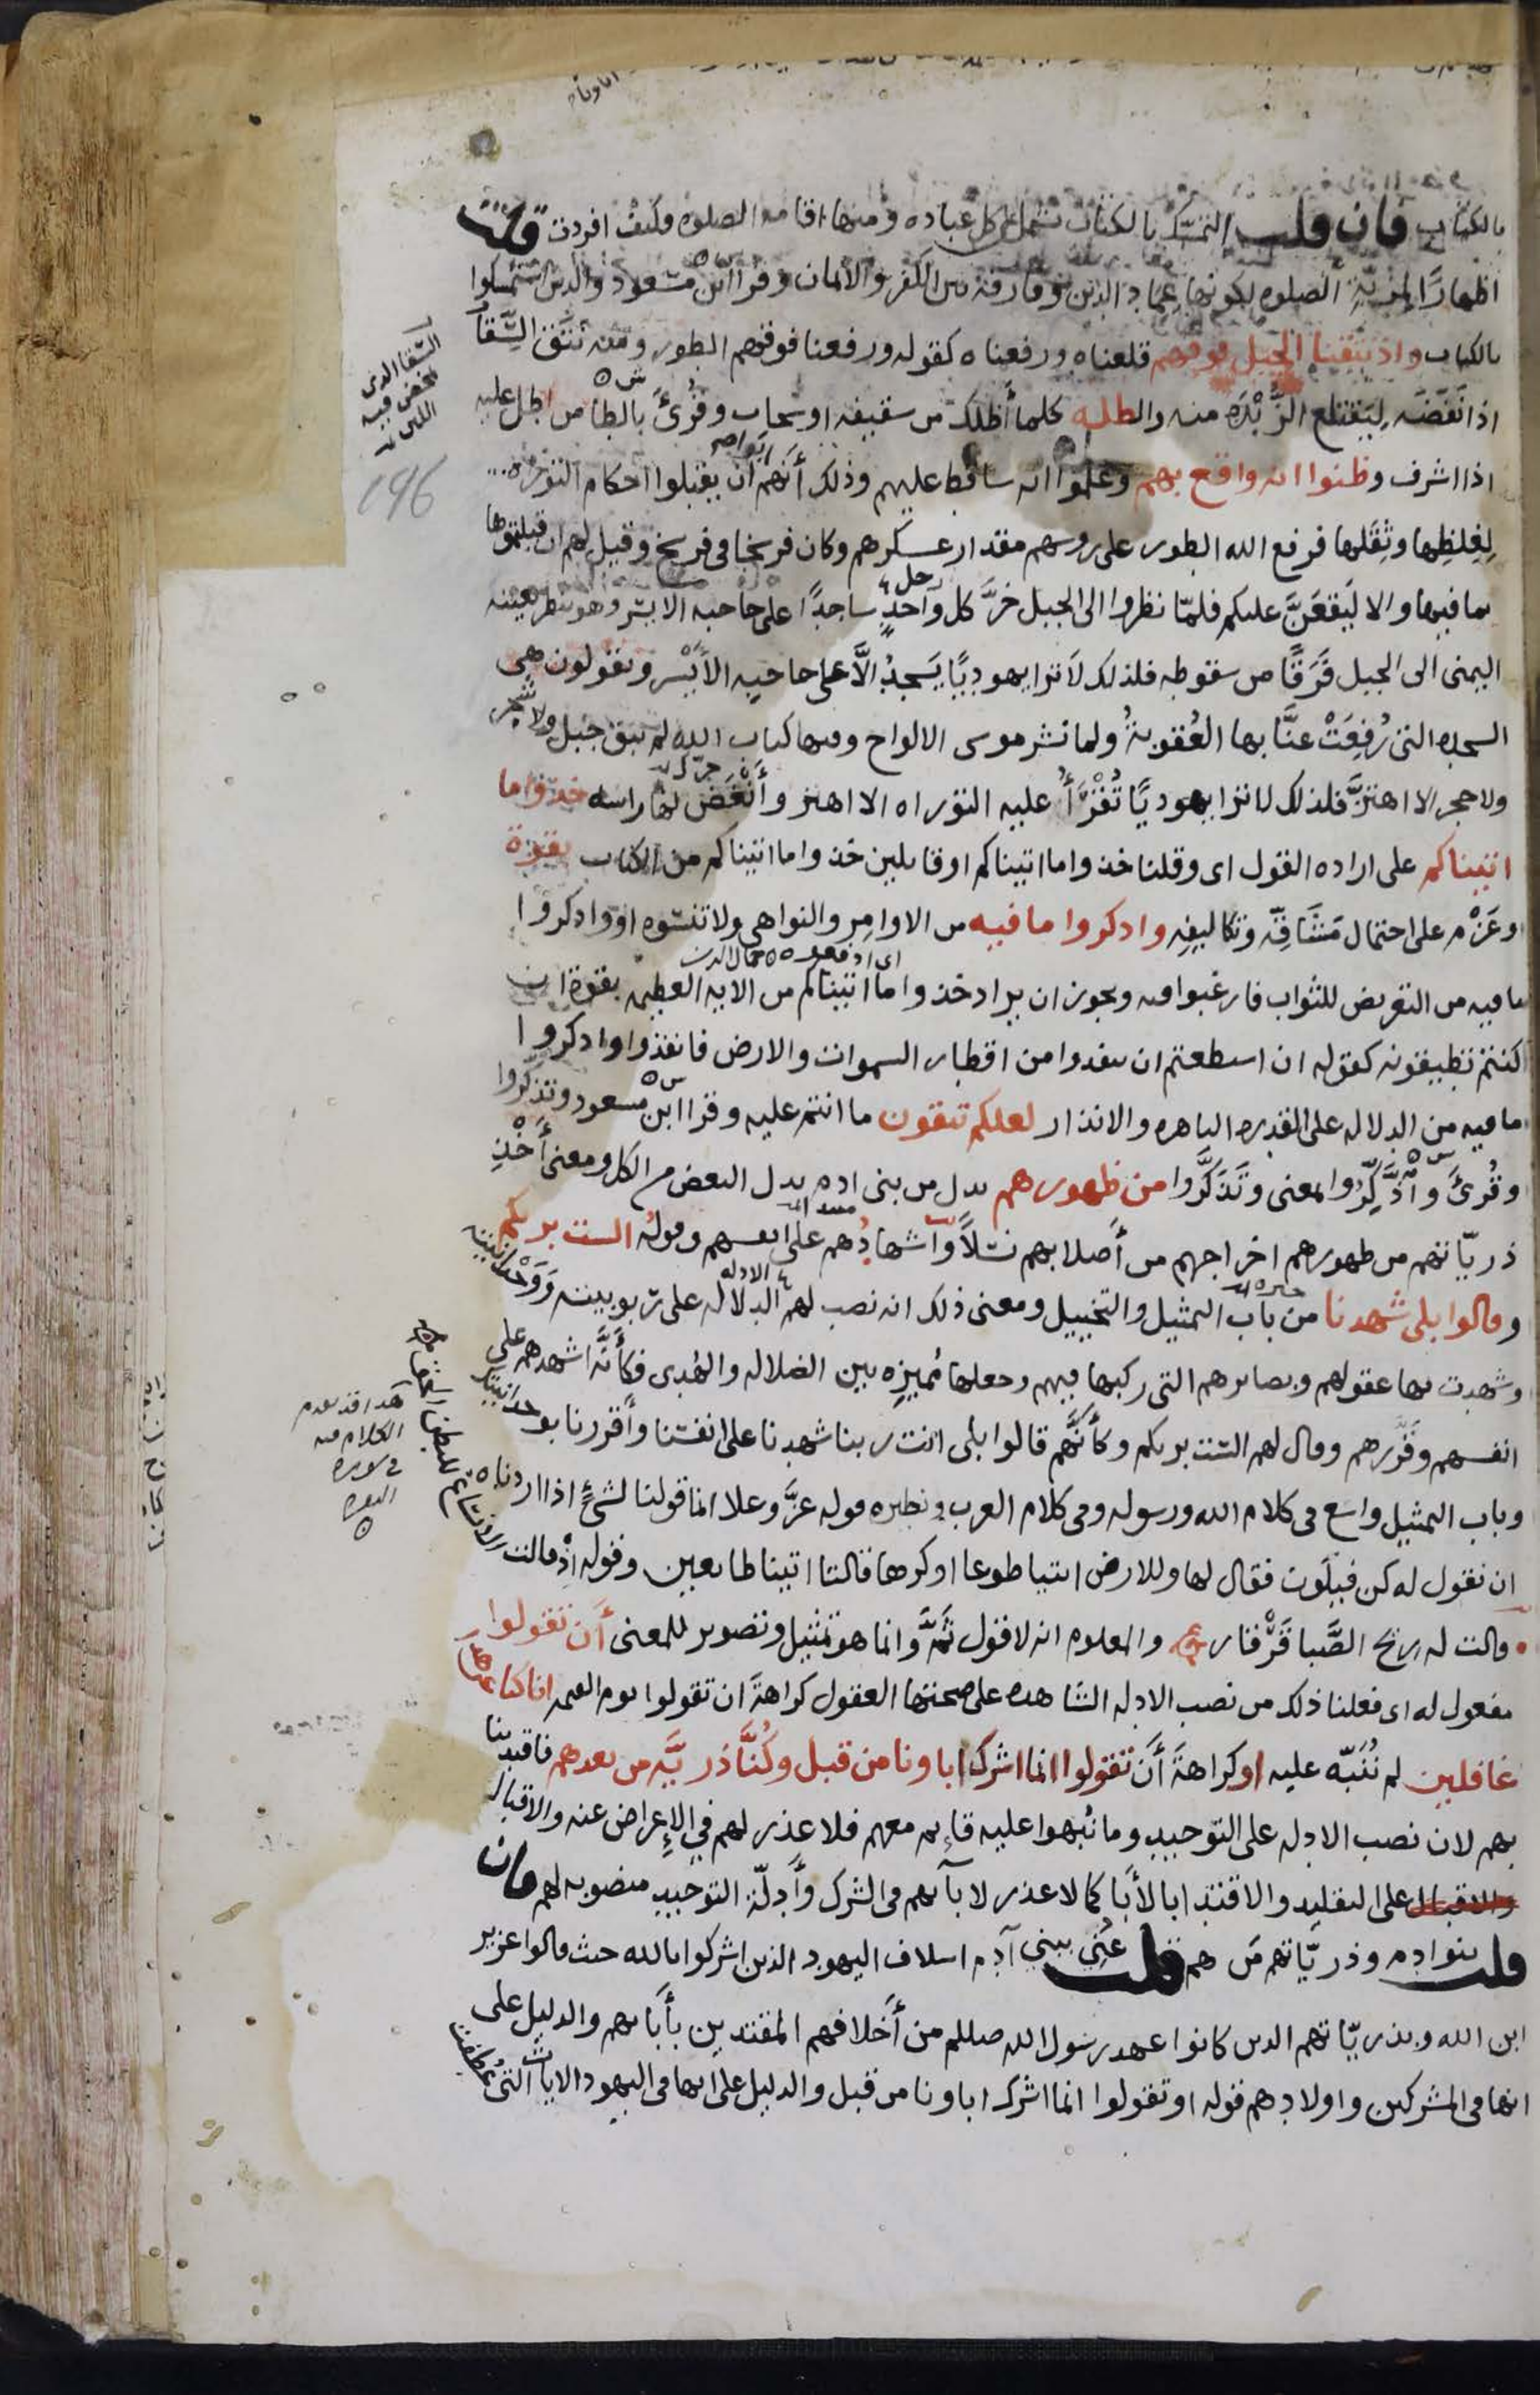 بالكتاب فان قلت التمسك بالكتاب يشتمل على كل عباده ومنها اقامه الصلوه فكيف افردت قلت
اظهارًا لمزيّة الصلوه لكونها عماد الدين وفارقة بين الكفر والايمان وقرا ابن مسعود والذين استمسكوا
بالكتاب واذ نتقنا الجبل فوقهم قلعناه ورفعناه كقوله ورفعنا فوقهم الطور ومنه نتق السِّقا
اذا نَفَضَه ليَقتلع الزُّبْدَة منه والظله كلما أظلك من سقيفه او سحاب وقُرئَ بالطا من اطل عليه
اذا اشرف وظنوا انه واقع بهم وعلموا انه ساقط عليهم وذلك أنهم ابوا ان يقبلوا احكام التوراه
لِغِلظِها وثِقَلها فرفع الله الطور على روسهم مقدار عسكرهم وكان فرسخا في فرسخ وقيل لهم ان قبلتموها
بما فيها والا ليَقعَنّ عليكم فلمّا نظروا الى الجبل خرَّ كل رجل واحدٍ ساجدًا على حاجبه الايسر وهو ينظر بعينه
اليمنى الى الجبل فَرَقًا من سقوطه فلذلك لا ترا يهوديًا يَسجدُ الاَّ على حاجبه الأيْسر ويقولون هى
السجده التى رُفِعَتْ عنَّا بها العُقوبةُ ولما نشر موسى الالواح وفيها كتاب الله لم يبق جبل ولا شجر
ولا حجر الا اهتزَّ فلذلك لا ترا يهوديًا تُقْرَأُ عليه التوراه الا اهتز وأنْغَض لها راسه خذوا ما
اتيناكم على اراده القول اى وقلنا خذوا ما اتيناكم او قايلين خذوا ما اتيناكم من الكتاب بقوة
وعَزْم على احتمال مَشَاقِّه وتكاليفِه واذكروا ما فيه من الاوامِر والنواهي ولا تنسَوه او واذكروا
ما فيه من التعريض للثواب فارغبوا فيه ويجوز ان يراد خذوا ما اتيناكم من الايه العظيمه بقوة ان
كنتم تطيقونه كقوله ان استطعتم ان تنفذوا من اقطار السموات والارض فانفذوا واذكروا
ما فيه من الدلاله على القدره الباهره والانذار لعلكم تتقون ما انتم عليه وقرا ابن مسعود وتذكّروا
وقُرئَ واذَّكِّرُوا المعنى وتَذكَّرُوا من ظهورهم بدل من بنى ادم بدل البعض من الكل ومعنى أخْذِ
ذريّاتهم من ظهورهم اخراجهم من أصلابهم نسْلًا واشهادُهم على انفسهم وقوله الست بربكم
وقالوا بلى شهدنا من باب التمثيل والتخييل ومعنى ذلك انه نصب لهم الدلاله على ربوبيته ووَحْدانيته
وشهدت بها عقولهم وبصايرهم التى ركبها فيهم وجعلها مُميزه بين الضلاله والهُدى فكأنَّه اشهدهم على
انفسهم وقَرَّرهم وقال لهم الست بربكم وكأنَّهم قالوا بلى انت ربنا شهدنا على انفسنا وأقررنا بوحدانيتك
وباب التمثيل واسع فى كلام الله ورسوله وفى كلام العرب ونظيره قوله عزَّ وعلا انما قولنا لشئٍ اذا اردناه
ان نقول له كن فيكون فقال لها وللارض ائتيا طوعا او كرها قالتا اتينا طايعين وقوله اذْ قالت
قالت له ريح الصَّبا قَرْقار والمعلوم انه لا قول ثَمَّ وانما هو تمثيل وتصوير للمعنى أن تقولوا
مفعول له اى فعلنا ذلك من نصب الادله الشاهده على صحتها العقول كراهةَ ان تقولوا يوم القيمه انا كنا عن هذا
غافلين لم نُنَبَّه عليه او كراهةَ أن تقولوا انما اشرك اباونا من قبل وكُنَّا ذريَّه من بعدهم فاقتدينا
بهم لان نصب الادله على التوحيد وما نُبهوا عليه قايم معهم فلا عذر لهم في الإعراض عنه والاقبال
والاقبال على التقليد والاقتدا بالأبا كما لا عذر لابآيهم فى الشرك وأدِلّة التوحيد منصوبه لهم فان
قلت بنو ادم وذريّاتهم مَن هم قلت عَنى ببني آدم اسلاف اليهود الذين اشركوا بالله حيث قالوا عزير
ابن الله وبذريّاتهم الذين كانوا عهد رسول الله صللم من أخلافهم المقتدين بأبآيهم والدليل على
انها فى المشركين واولادهم قوله او تقولوا انما اشرك اباونا من قبل والدليل على انها فى اليهود الايات التى عُطفت
السقا الذى
يمخض فيه
اللبن
196
هذا قد تقدم
الكلام فيه
في سورة
البقره